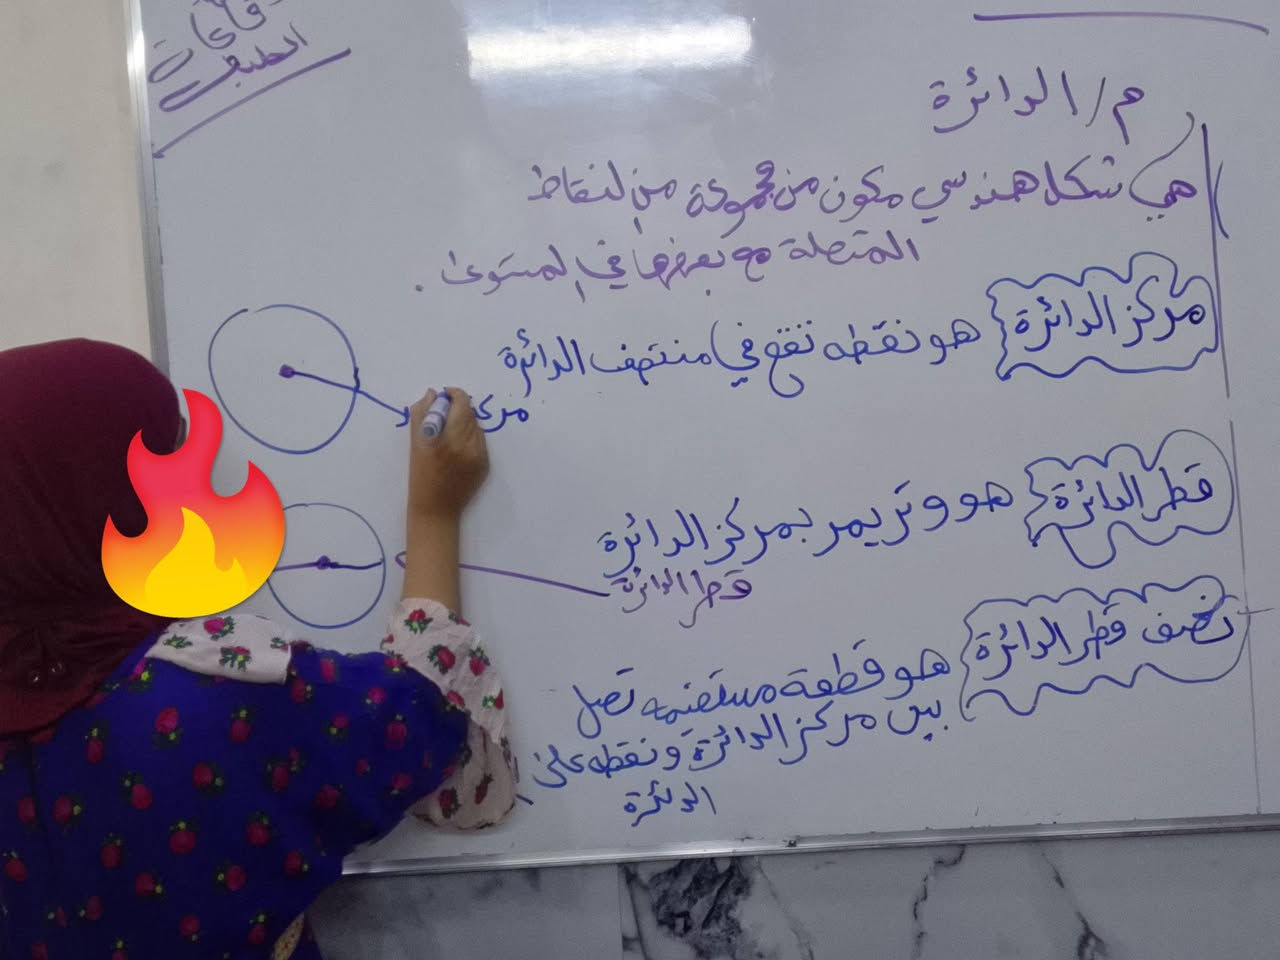 م/ الدائرة
هي شكل هندسي مكون من مجموعة من النقاط
المتصلة مع بعضها في المستوى .
مركز الدائرة هو نقطه تقع في منتصف الدائرة
مركز
قطر الدائرة هو وتر يمر بمركز الدائرة
قطر الدائرة
نصف قطر الدائرة هو قطعة مستقيمه تصل
بين مركز الدائرة ونقطه على
الدائرة